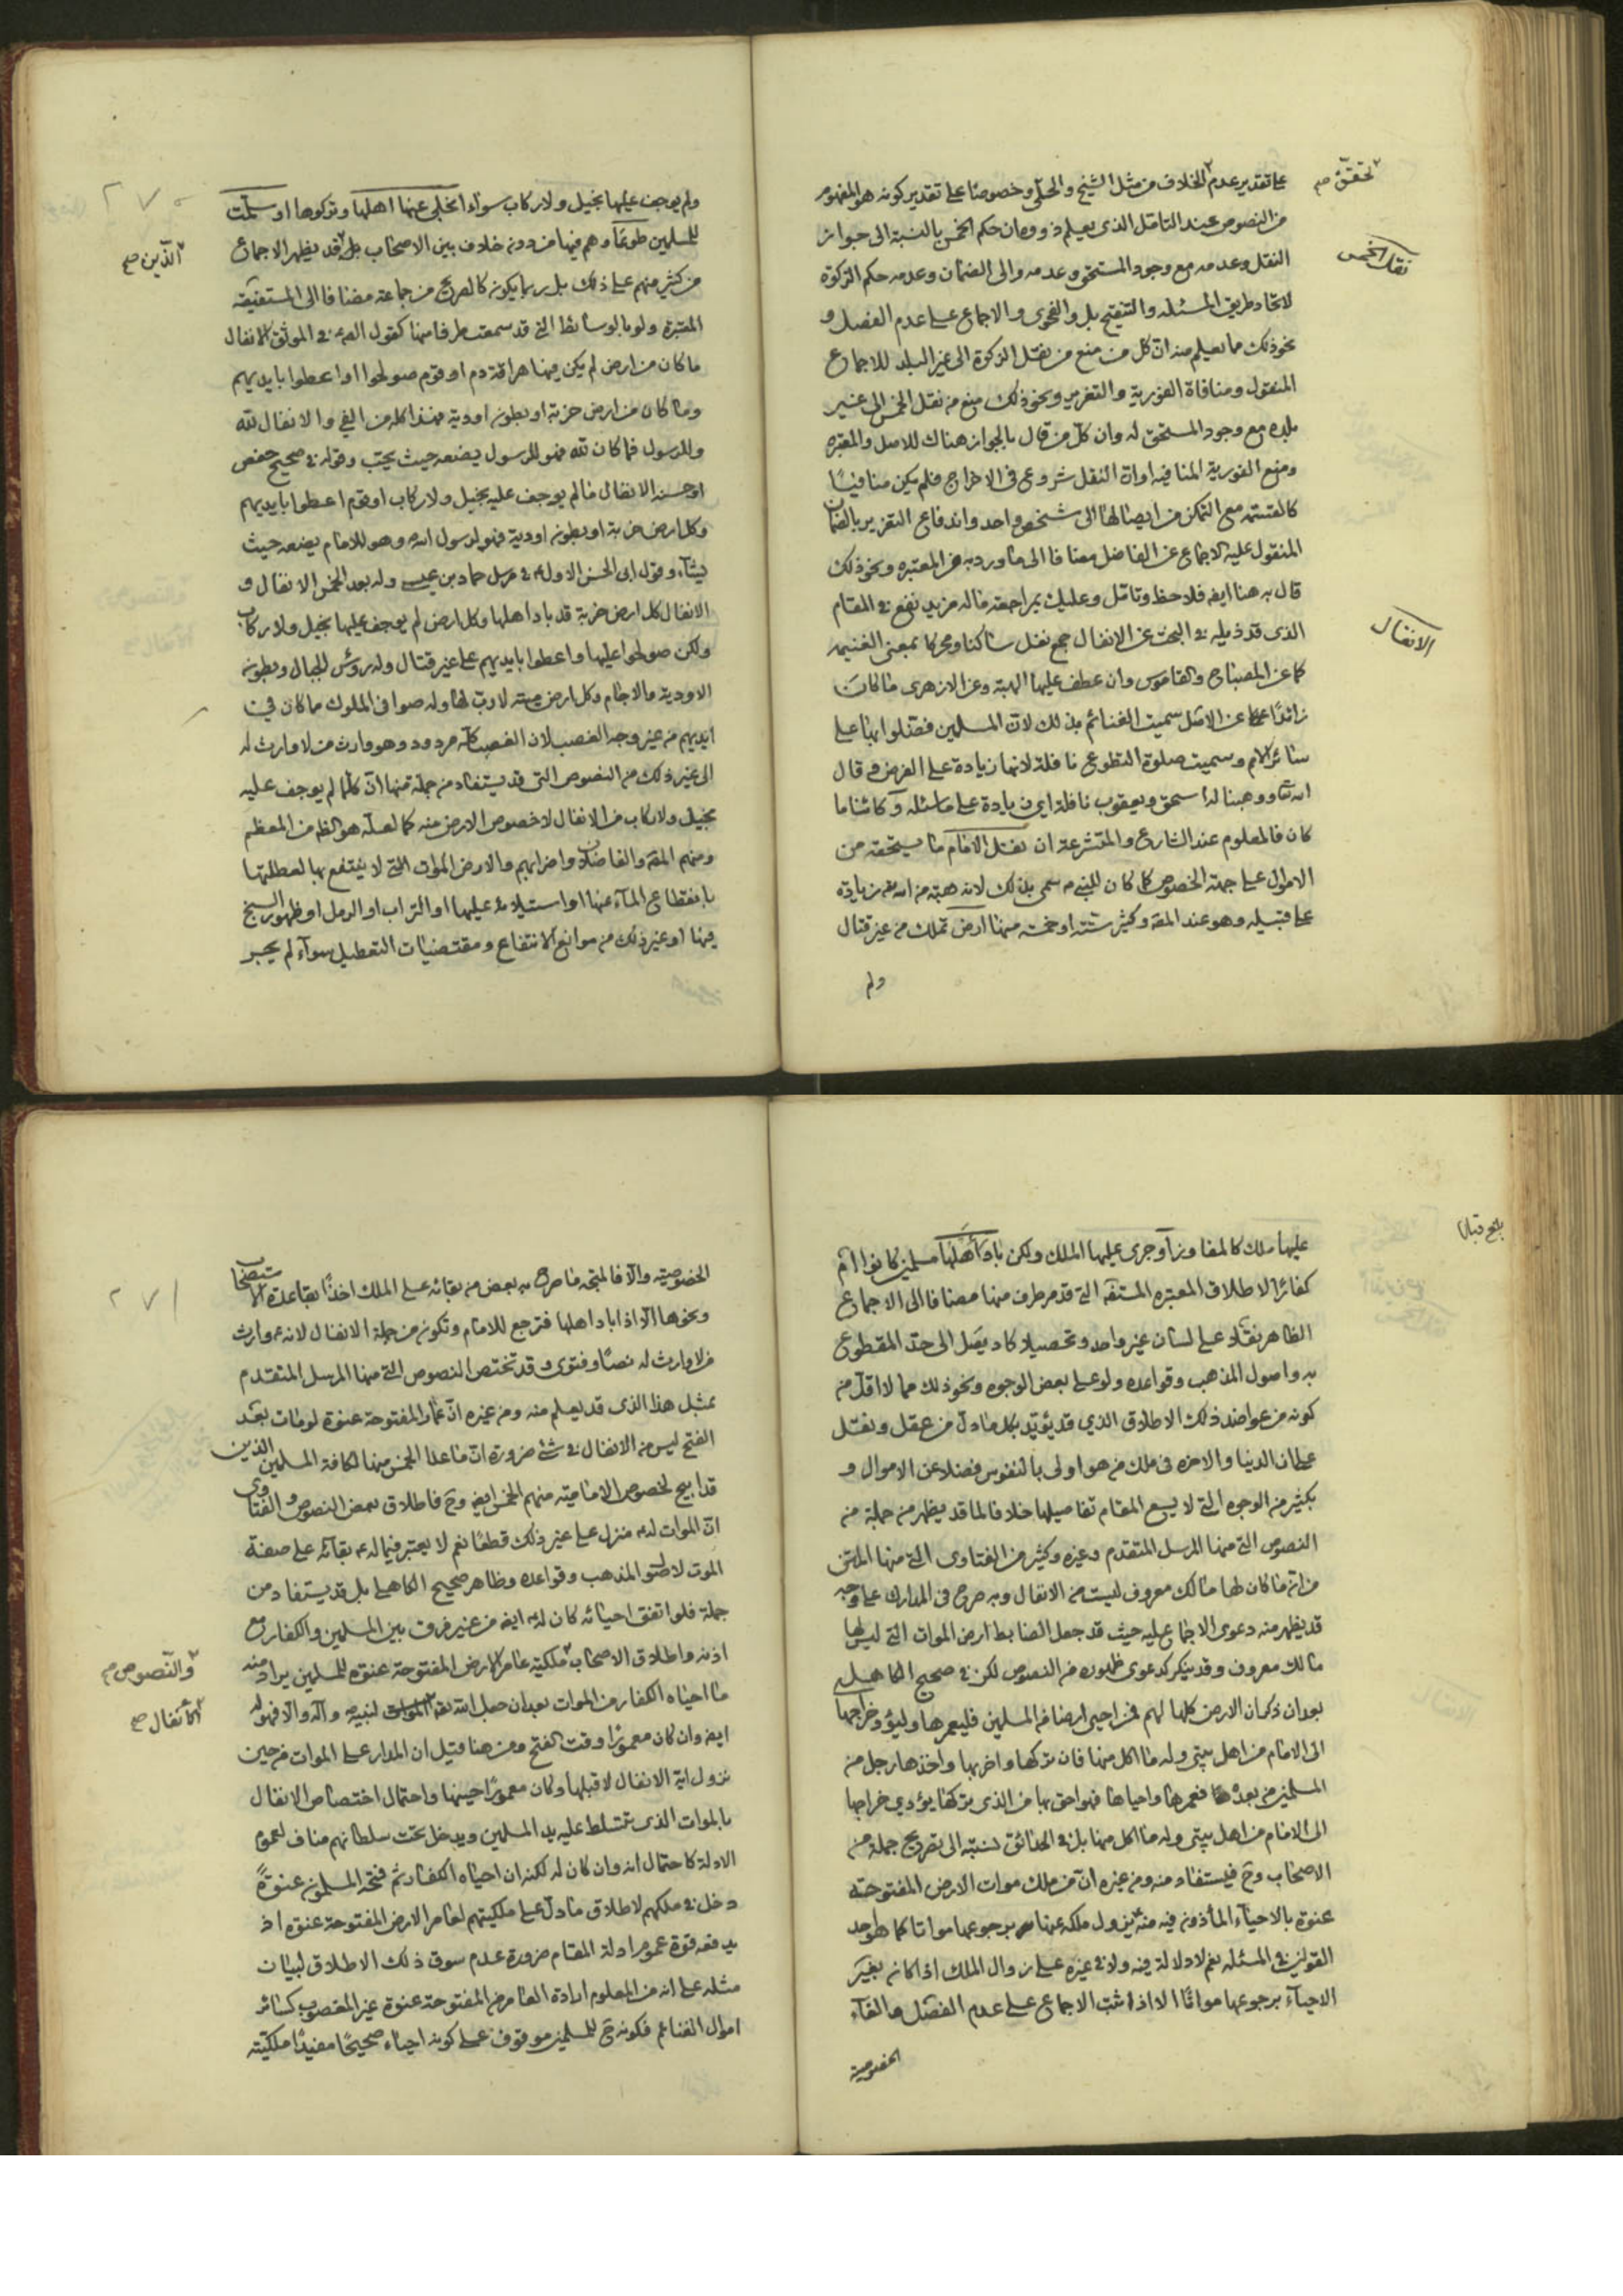 على تقدير عدم الخلاف من مثل الشيخ والحلي وخصوصا على تقدير كونه هو المفهوم
تحقق صح
من النصوص عند التامل الذي يعلم ذووه ان حكم الخمس بالنسبة الى جواز
النقل وعدمه مع وجود المستحق وعدمه والى الضمان وعدمه حكم الزكوة
نقل الخمس
لاتحاد طريق المسئله والتنقيح بل والفحوى والاجماع على عدم الفصل و
نحو ذلك مما يعلم منه ان كل من منع من نقل الزكوة الى غير البلد للاجماع
المنقول ومنافاة الفورية والتغرير ونحو ذلك منع من نقل الخمس الى غير
بلده مع وجود المستحق له وان كل من قال بالجواز هناك للاصل والمعتبره
ومنع الفورية المنافيه او ان النقل شروع في الاخراج فلم يكن منافيا
كالقسمة مع التمكن من ايصالها الى شخص واحد واندفاع التغرير بالضمان
المنقول عليه الاجماع عن الفاضل مضافا الى ما ورد به من المعتبره ونحو ذلك
قال به هنا ايضا فلاحظ وتامل وعليك بمراجعة ماله مزيد نفع في المقام
الذي قد ذيله في البحث عن الانفال جمع نفل ساكنا ومحركا بمعنى الغنيمه
الانفال
كما عن المصباح والقاموس وان عطف عليها الهبة وعن الازهري ما كان
زائدا عن الاصل سميت الغنائم بذلك لان المسلمين فضلوا بها على
سائر الامم وسميت صلوة التطوع نافلة لانها زيادة على الفرض وقال
الله تعالى ووهبنا له اسحق ويعقوب نافلة اي زيادة على ما سئله وكائنا ما
كان فالمعلوم عند الشارع والمتشرعة ان نفل الامام ما يستحقه من
الاموال على جهة الخصوص كما كان للنبي ص سمى بذلك لانه هبة من الله له زيادة
على قبيله وهو عند المص وكثير ستة او خمسة منها ارض تملك من غير قتال
ولم
٢٧٠
ولم يوجف عليها بخيل ولا ركاب سواء انجلى عنها اهلها وتركوها او سلمت
للمسلمين طوعا وهم فيها من دون خلاف بين الاصحاب بل قد يظهر الاجماع
الذين صح
من كثير منهم على ذلك بل ربما يكون كالصريح من جماعة مضافا الى المستفيضة
المعتبرة ولو بالوسائط التي قد سمعت طرفا منها كقول الص ع في الموثق الانفال
ما كان من ارض لم يكن فيها هراقة دم او قوم صولحوا او اعطوا بايديهم
وما كان من ارض خربة او بطون اودية فهذا كله من الفئ والانفال لله
وللرسول فما كان لله فهو للرسول يضعه حيث يحب وقوله في صحيح حفص
او حسنه الانفال ما لم يوجف عليه بخيل ولا ركاب او قوم اعطوا بايديهم
وكل ارض خربة او بطون اودية فهو لرسول الله وهو للامام يضعه حيث
يشاء وقول ابي الحسن الاول ع في مرسل حماد بن عيسى وله بعد الخمس الانفال و
الانفال كل ارض خربة قد باد اهلها وكل ارض لم يوجف عليها بخيل ولا ركاب
ولكن صولحوا عليها واعطوا بايديهم على غير قتال وله رؤس الجبال وبطون
الاودية والاجام وكل ارض ميتة لا رب لها وله صوافي الملوك ما كان في
ايديهم من غير وجه الغصب لان الغصب كله مردود وهو وارث من لا وارث له
الى غير ذلك من النصوص التي قد يستفاد من جملة منها ان كلما لم يوجف عليه
بخيل ولا ركاب من الانفال لا خصوص الارض منه كما لعله هو الظ من المعظم
ومنهم المص والفاضلان واضرابهم والارض الموات التي لا ينتفع بها لعطلتها
بانقطاع المآء عنها او استيلائه عليها او التراب او الرمل او ظهور السبخ
فيها او غير ذلك من موانع الانتفاع ومقتضيات التعطيل سواء لم يجر
عليها ملك كالمفاوز او جرى عليها الملك ولكن باد اهلها مسلمين كانوا ام
كفارا لاطلاق المعتبره المستفيضة التي قد مر طرف منها مضافا الى الاجماع
الظاهر نقله على لسان غير واحد وتحصيلا كاد يصل الى حد المقطوع
به واصول المذهب وقواعده ولو على بعض الوجوه ونحو ذلك مما لا اقل من
كونه من عواضد ذلك الاطلاق الذي قد يؤيد بكل ما دل من عقل ونقل
على ان الدنيا والاخره في ملك من هو اولى بالنفوس فضلا عن الاموال و
بكثير من الوجوه التي لا يسع المقام تفاصيلها خلافا لما قد يظهر من جملة من
النصوص التي منها المرسل المتقدم وغيره وكثير من الفتاوى التي منها المتن
من ان ما كان لها مالك معروف ليست من الانفال وبه صرح في المدارك على وجه
قد يظهر منه دعوى الاجماع عليه حيث قد جعل الضابط ارض الموات التي ليس لها
مالك معروف وقد ينكر كدعوى ظهوره من النصوص لكن في صحيح الكاهلي
بعد ان ذكر ان الارض كلها لهم فمن احيى ارضا من المسلمين فليعمرها وليؤد خراجها
الى الامام من اهل بيتي وله ما اكل منها فان تركها واخربها واخذها رجل من
المسلمين من بعده فعمرها واحياها فهو احق بها من الذي تركها يؤدي خراجها
الى الامام من اهل بيتي وله ما اكل منها بل في الحدائق نسبته الى تصريح جملة من
الاصحاب وح فيستفاد منه ومن غيره ان من ملك موات الارض المفتوحة
عنوة بالاحياء المأذون فيه منه ع يزول ملكه عنها برجوعها مواتا كما هو احد
القولين في المسئله نعم لا دلالة فيه ولا في غيره على زوال الملك اذا كان بغير
الاحياء برجوعها مواتا الا اذا ثبت الاجماع على عدم الفصل والغاء
الخصوصية
٢٧١
الخصوصية والا فالمتجه ما صرح به بعض من بقائه على الملك اخذا بقاعدة الاستصحاب
ونحوها الا اذا باد اهلها فترجع للامام وتكون من جملة الانفال لانه ع وارث
من لا وارث له نصا وفتوى وقد تختص النصوص التي منها المرسل المتقدم
بمثل هذا الذي قد يعلم منه ومن غيره ان عامر المفتوحة عنوة لو مات بعد
الفتح ليس من الانفال في شئ ضرورة ان ما عدا الخمس منها لكافة المسلمين الذين
قد ابيح لخصوص الامامية منهم الخمس ايضا وح فاطلاق بعض النصوص والفتاوى
ان الموات له ع منزل على غير ذلك قطعا نعم لا يعتبر فيما له ع بقائه على صفة
الموت لاصول المذهب وقواعده وظاهر صحيح الكاهلي بل قد يستفاد من
جملة فلو اتفق احيائه كان له ع ايضا من غير فرق بين المسلمين والكفار مع
اذنه واطلاق الاصحاب ملكية عامر الارض المفتوحة عنوة للمسلمين يراد منه
والنصوص صح
ما احياه الكفار من الموات بعد ان جعل الله تعالى لنبيه ص وآله والا فهو له
الانفال صح
ايضا وان كان معمورا وقت الفتح ومن هنا قيل ان المدار على الموات من حين
نزول اية الانفال لا قبلها وكان معمورا حينها واحتمال اختصاص الانفال
بالموات الذي تتسلط عليه يد المسلمين ويدخل تحت سلطانهم مناف لعموم
الادلة كاحتمال انه وان كان له لكنه ان احياه الكفار ثم فتحه المسلمون عنوة
دخل في ملكهم لاطلاق ما دل على ملكيتهم لعامر الارض المفتوحة عنوة اذ
يدفعه قوة عموم ادلة المقام ضرورة عدم سوق ذلك الاطلاق لبيان
مثله على انه من المعلوم ارادة العامر من المفتوحة عنوة غير المغصوب كسائر
اموال الغنائم فكونه ح للمسلمين موقوف على كونه احياء صحيحا مفيدا ملكيته